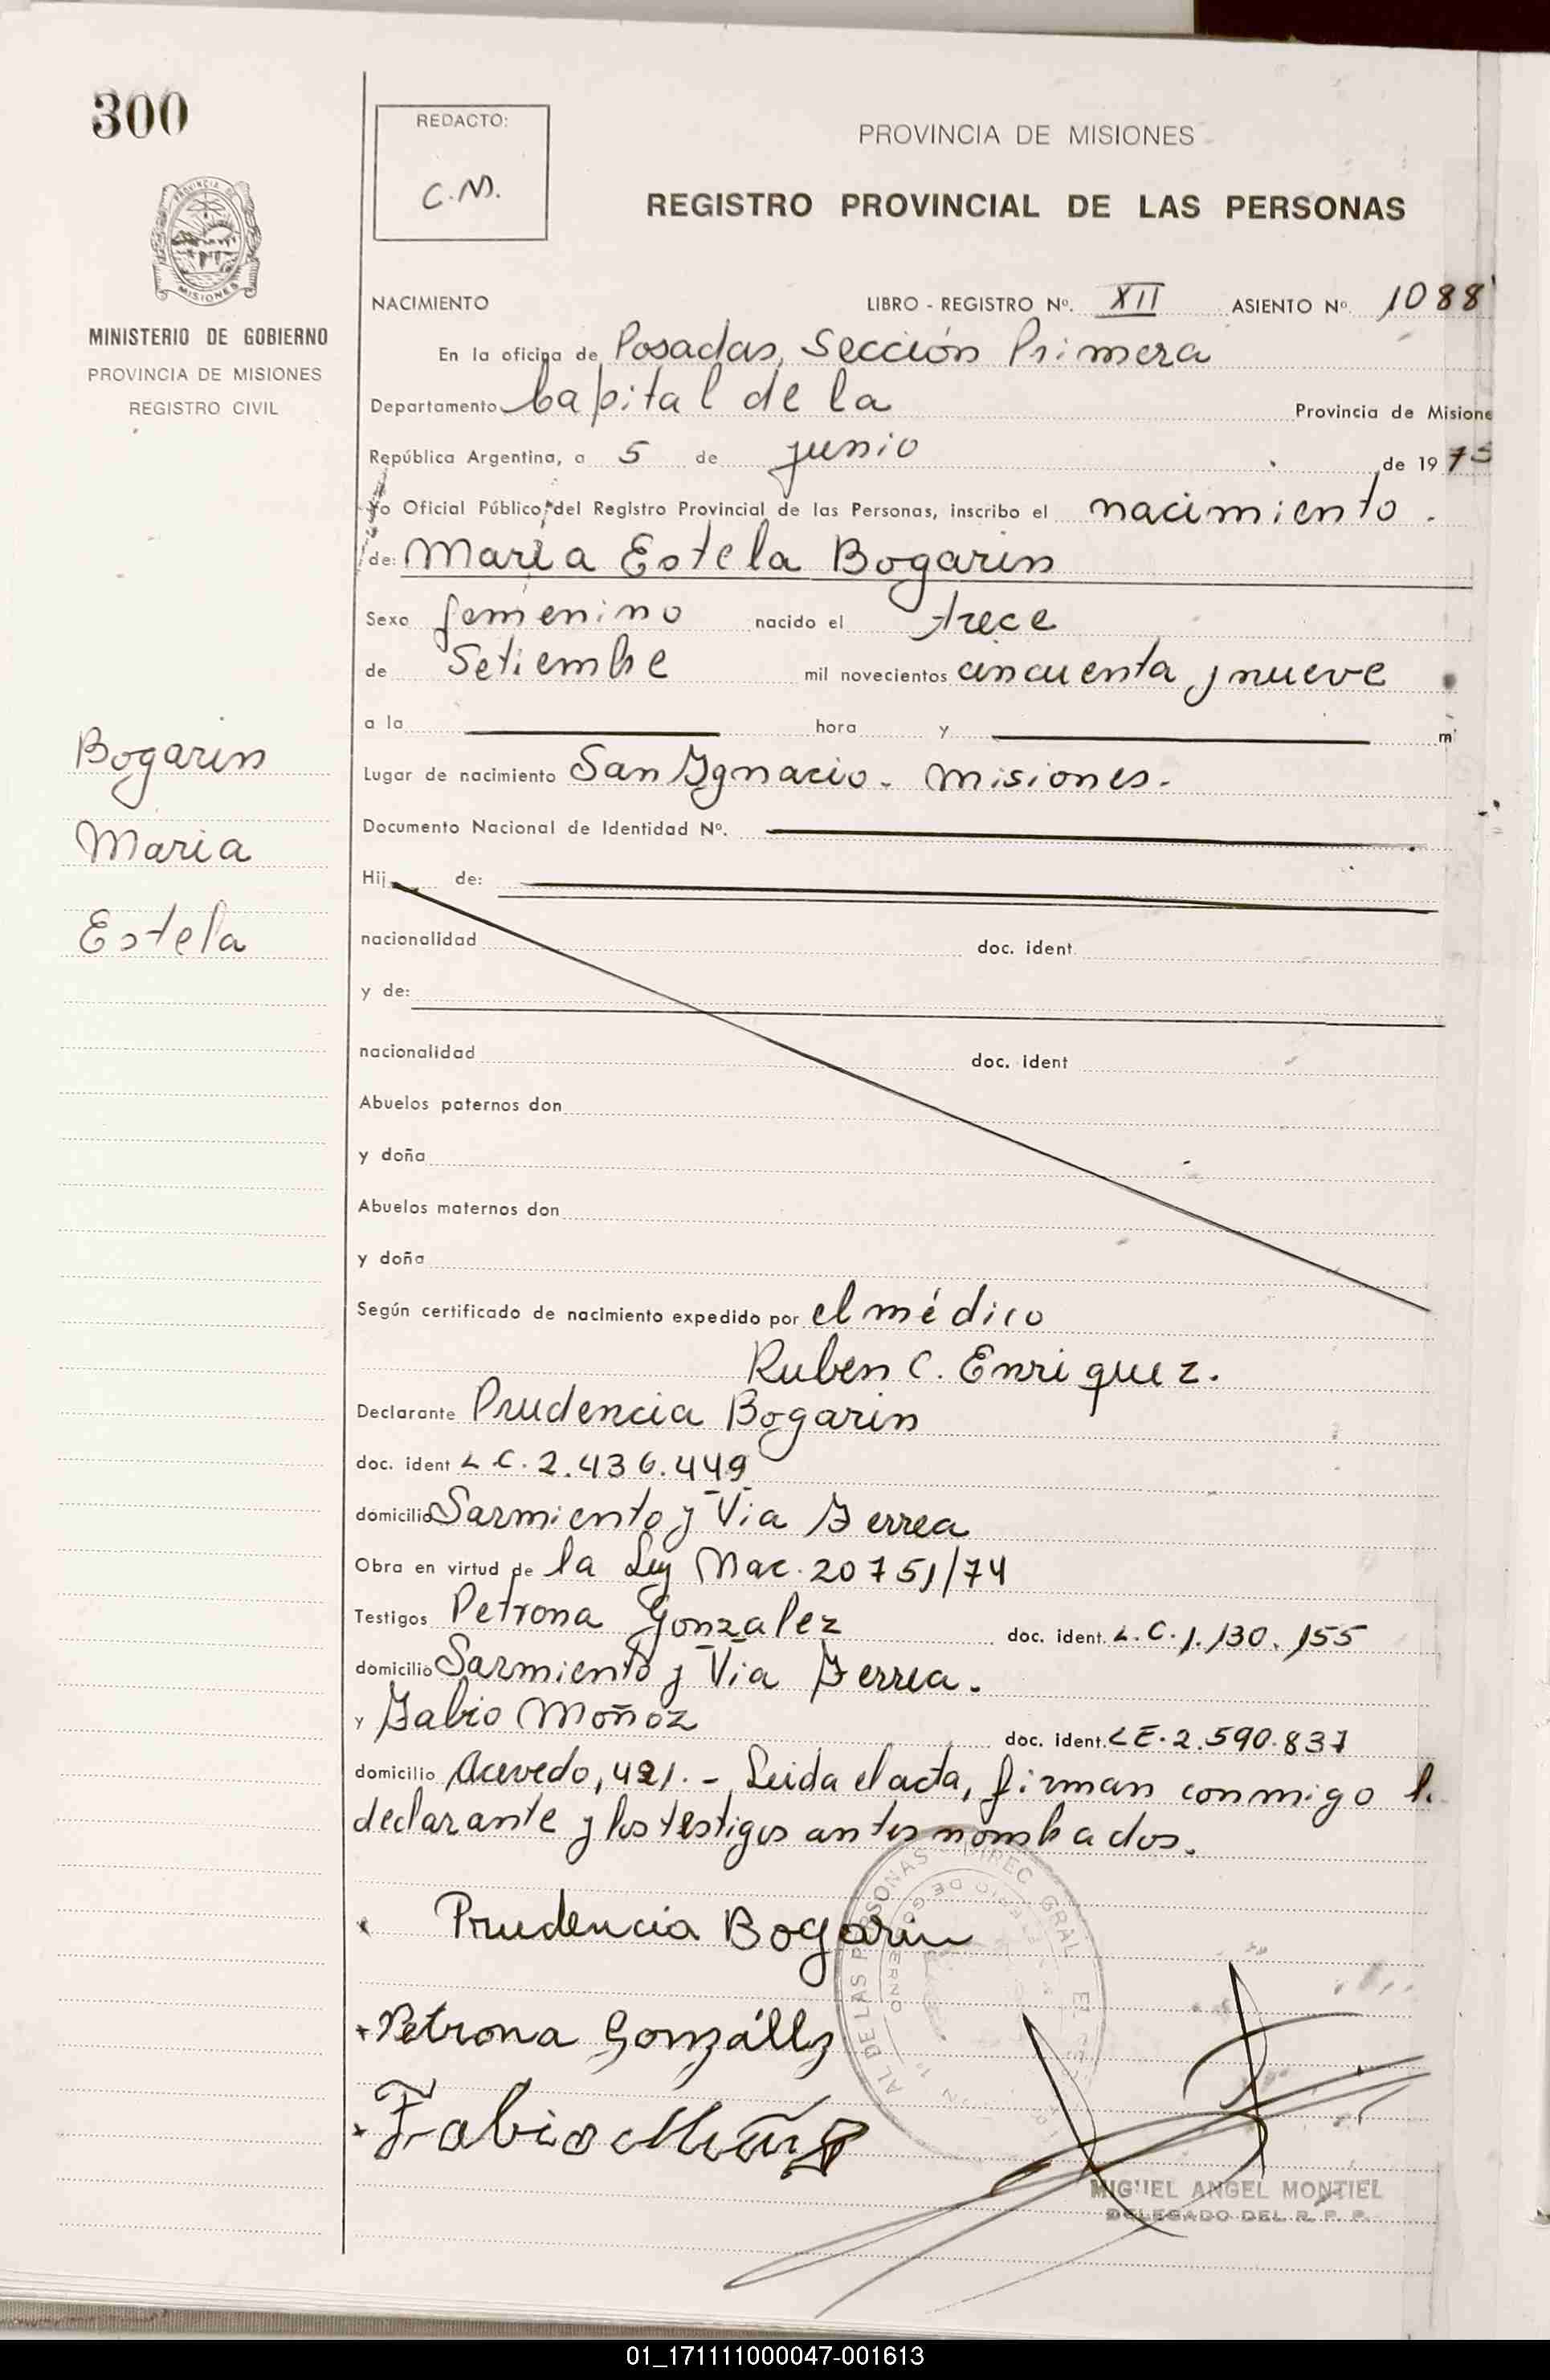 300
REDACTO:
C.M.
PROVINCIA DE MISIONES
REGISTRO PROVINCIAL DE LAS PERSONAS
PROVINCIA DE
MISIONES
MINISTERIO DE GOBIERNO
PROVINCIA DE MISIONES
REGISTRO CIVIL
NACIMIENTO LIBRO - REGISTRO Nº. XII ASIENTO Nº 1088
En la oficina de Posadas, Sección Primera
Departamento Capital de la Provincia de Misione
República Argentina, a 5 de junio de 1975
Yo Oficial Público, del Registro Provincial de las Personas, inscribo el nacimiento.
de: Maria Estela Bogarin
Sexo femenino nacido el trece
de Setiembre mil novecientos cincuenta y nueve
a la hora y m
Lugar de nacimiento San Ignacio. Misiones.
Documento Nacional de Identidad Nº.
Hij de:
nacionalidad doc. ident.
y de:
nacionalidad doc. ident
Abuelos paternos don
y doña
Abuelos maternos don
y doña
Bogarin
Maria
Estela
Según certificado de nacimiento expedido por el médico
Ruben C. Enriquez.
Declarante Prudencia Bogarin
doc. ident L.C. 2.436.449
domicilio Sarmiento y Via Ferrea
Obra en virtud de la Ley Nac. 20751/74
Testigos Petrona Gonzalez doc. ident. L.C. 1.130.155
domicilio Sarmiento y Via Ferrea.
y Fabio Moñoz doc. ident. LE. 2.590.837
domicilio Acevedo, 421. - Leida el acta, firman conmigo l.
declarante y los testigos antes nombrados.
Prudencia Bogarin
Petrona Gonzállz
Fabio Muñoz
MIGUEL ANGEL MONTIEL
DELEGADO DEL R. P. P.
01_171111000047-001613